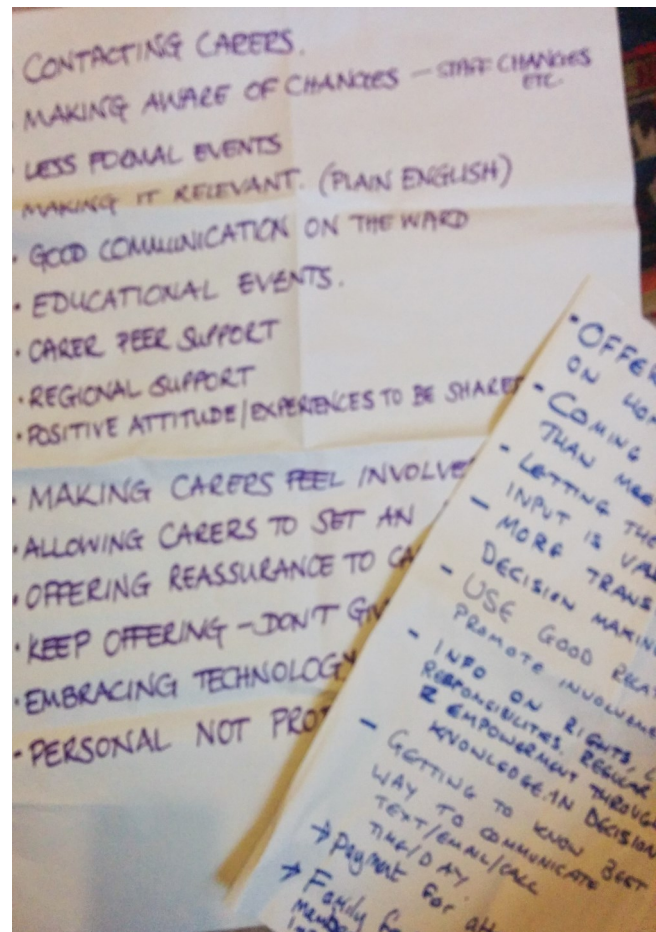 CONTACTING CARERS.
· MAKING AWARE OF CHANGES – STAFF CHANGES
ETC.
· LESS FORMAL EVENTS
MAKING IT RELEVANT. (PLAIN ENGLISH)
· GOOD COMMUNICATION ON THE WARD
· EDUCATIONAL EVENTS.
· CARER PEER SUPPORT
· REGIONAL SUPPORT
· POSITIVE ATTITUDE/EXPERIENCES TO BE SHARED
· MAKING CARERS FEEL INVOLVE
· ALLOWING CARERS TO SET AN
· OFFERING REASSURANCE TO CA
· KEEP OFFERING – DON'T GIV
· EMBRACING TECHNOLOGY
- PERSONAL NOT PROT
- OFFER
ON
- COMING
THAN MEE
- LETTING THE
INPUT IS VAL
- MORE TRANS
DECISION MAKING
- USE GOOD RELAT
PROMOTE INVOLVEME
- INFO ON RIGHTS,
RESPONSIBILITIES. REGULAR
& EMPOWERMENT THROUGH
KNOWLEDGE. IN DECISION
- GETTING TO KNOW BEST
WAY TO COMMUNICATE
TEXT/EMAIL/CALL
TIME/DAY.
→ Payment for
→ Family